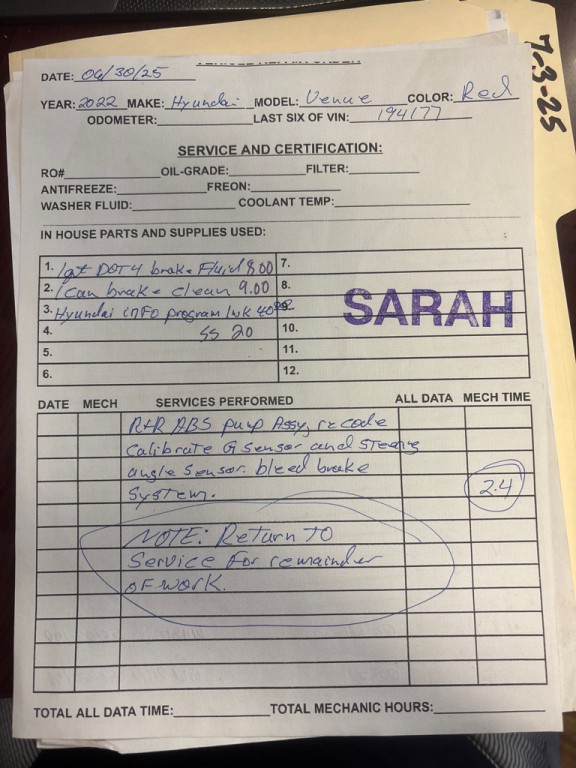 DATE: 06/30/25
7-3-25
YEAR: 2022 MAKE: Hyundai MODEL: Venue COLOR: Red
ODOMETER: LAST SIX OF VIN: 194177
SERVICE AND CERTIFICATION:
RO# OIL-GRADE: FILTER:
ANTIFREEZE: FREON:
WASHER FLUID: COOLANT TEMP:
IN HOUSE PARTS AND SUPPLIES USED:
1. 1qt DOT4 brake Fluid 8.00 7.
2. 1 can brake clean 9.00 8.
3. Hyundai inFO program 1wk 40.00 9.
4. SS 20 10.
5. 11.
6. 12.
SARAH
DATE MECH SERVICES PERFORMED ALL DATA MECH TIME
R+R ABS pump Assy, recode
Calibrate G Sensor and Steering
angle Sensor. bleed brake
System. 2.4
NOTE: Return TO
Service For remainder
OF work.
TOTAL ALL DATA TIME: TOTAL MECHANIC HOURS: